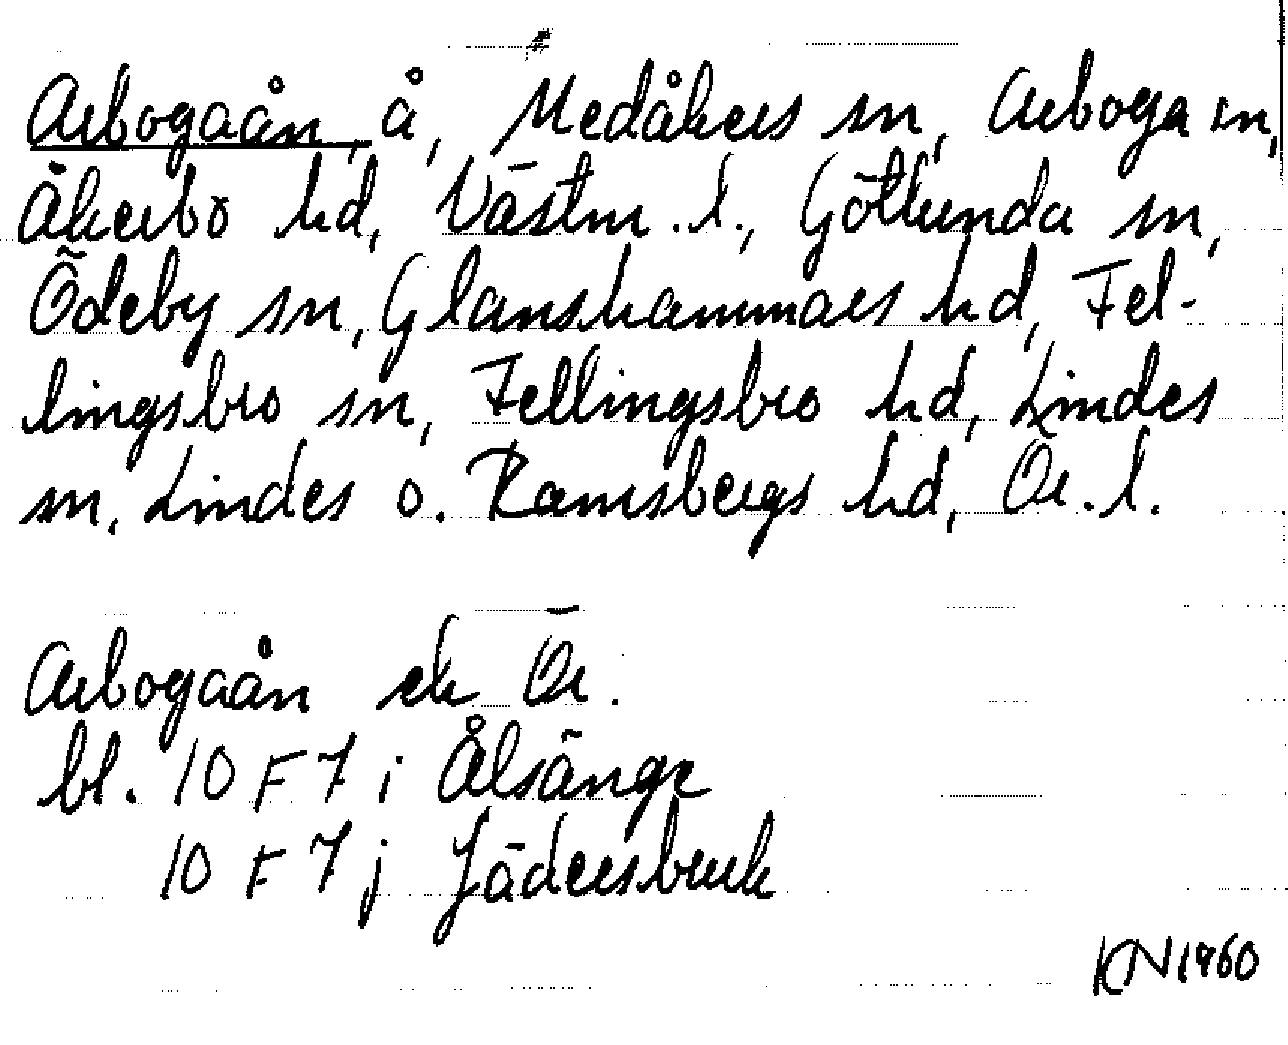 Arbogaån, å, Medåkers sn, Arboga sn,
Åkerbo hd, Västm. l., Götlunda sn,
Ödeby sn, Glanshammars hd, Fel-
lingsbro sn, Fellingsbro hd, Lindes
sn, Lindes o. Ramsbergs hd, Ör. l.
Arbogaån ek Ör.
bl. 10 F 7 i Ålsänge
10 F 7 j Jädersbruk
KN 1960